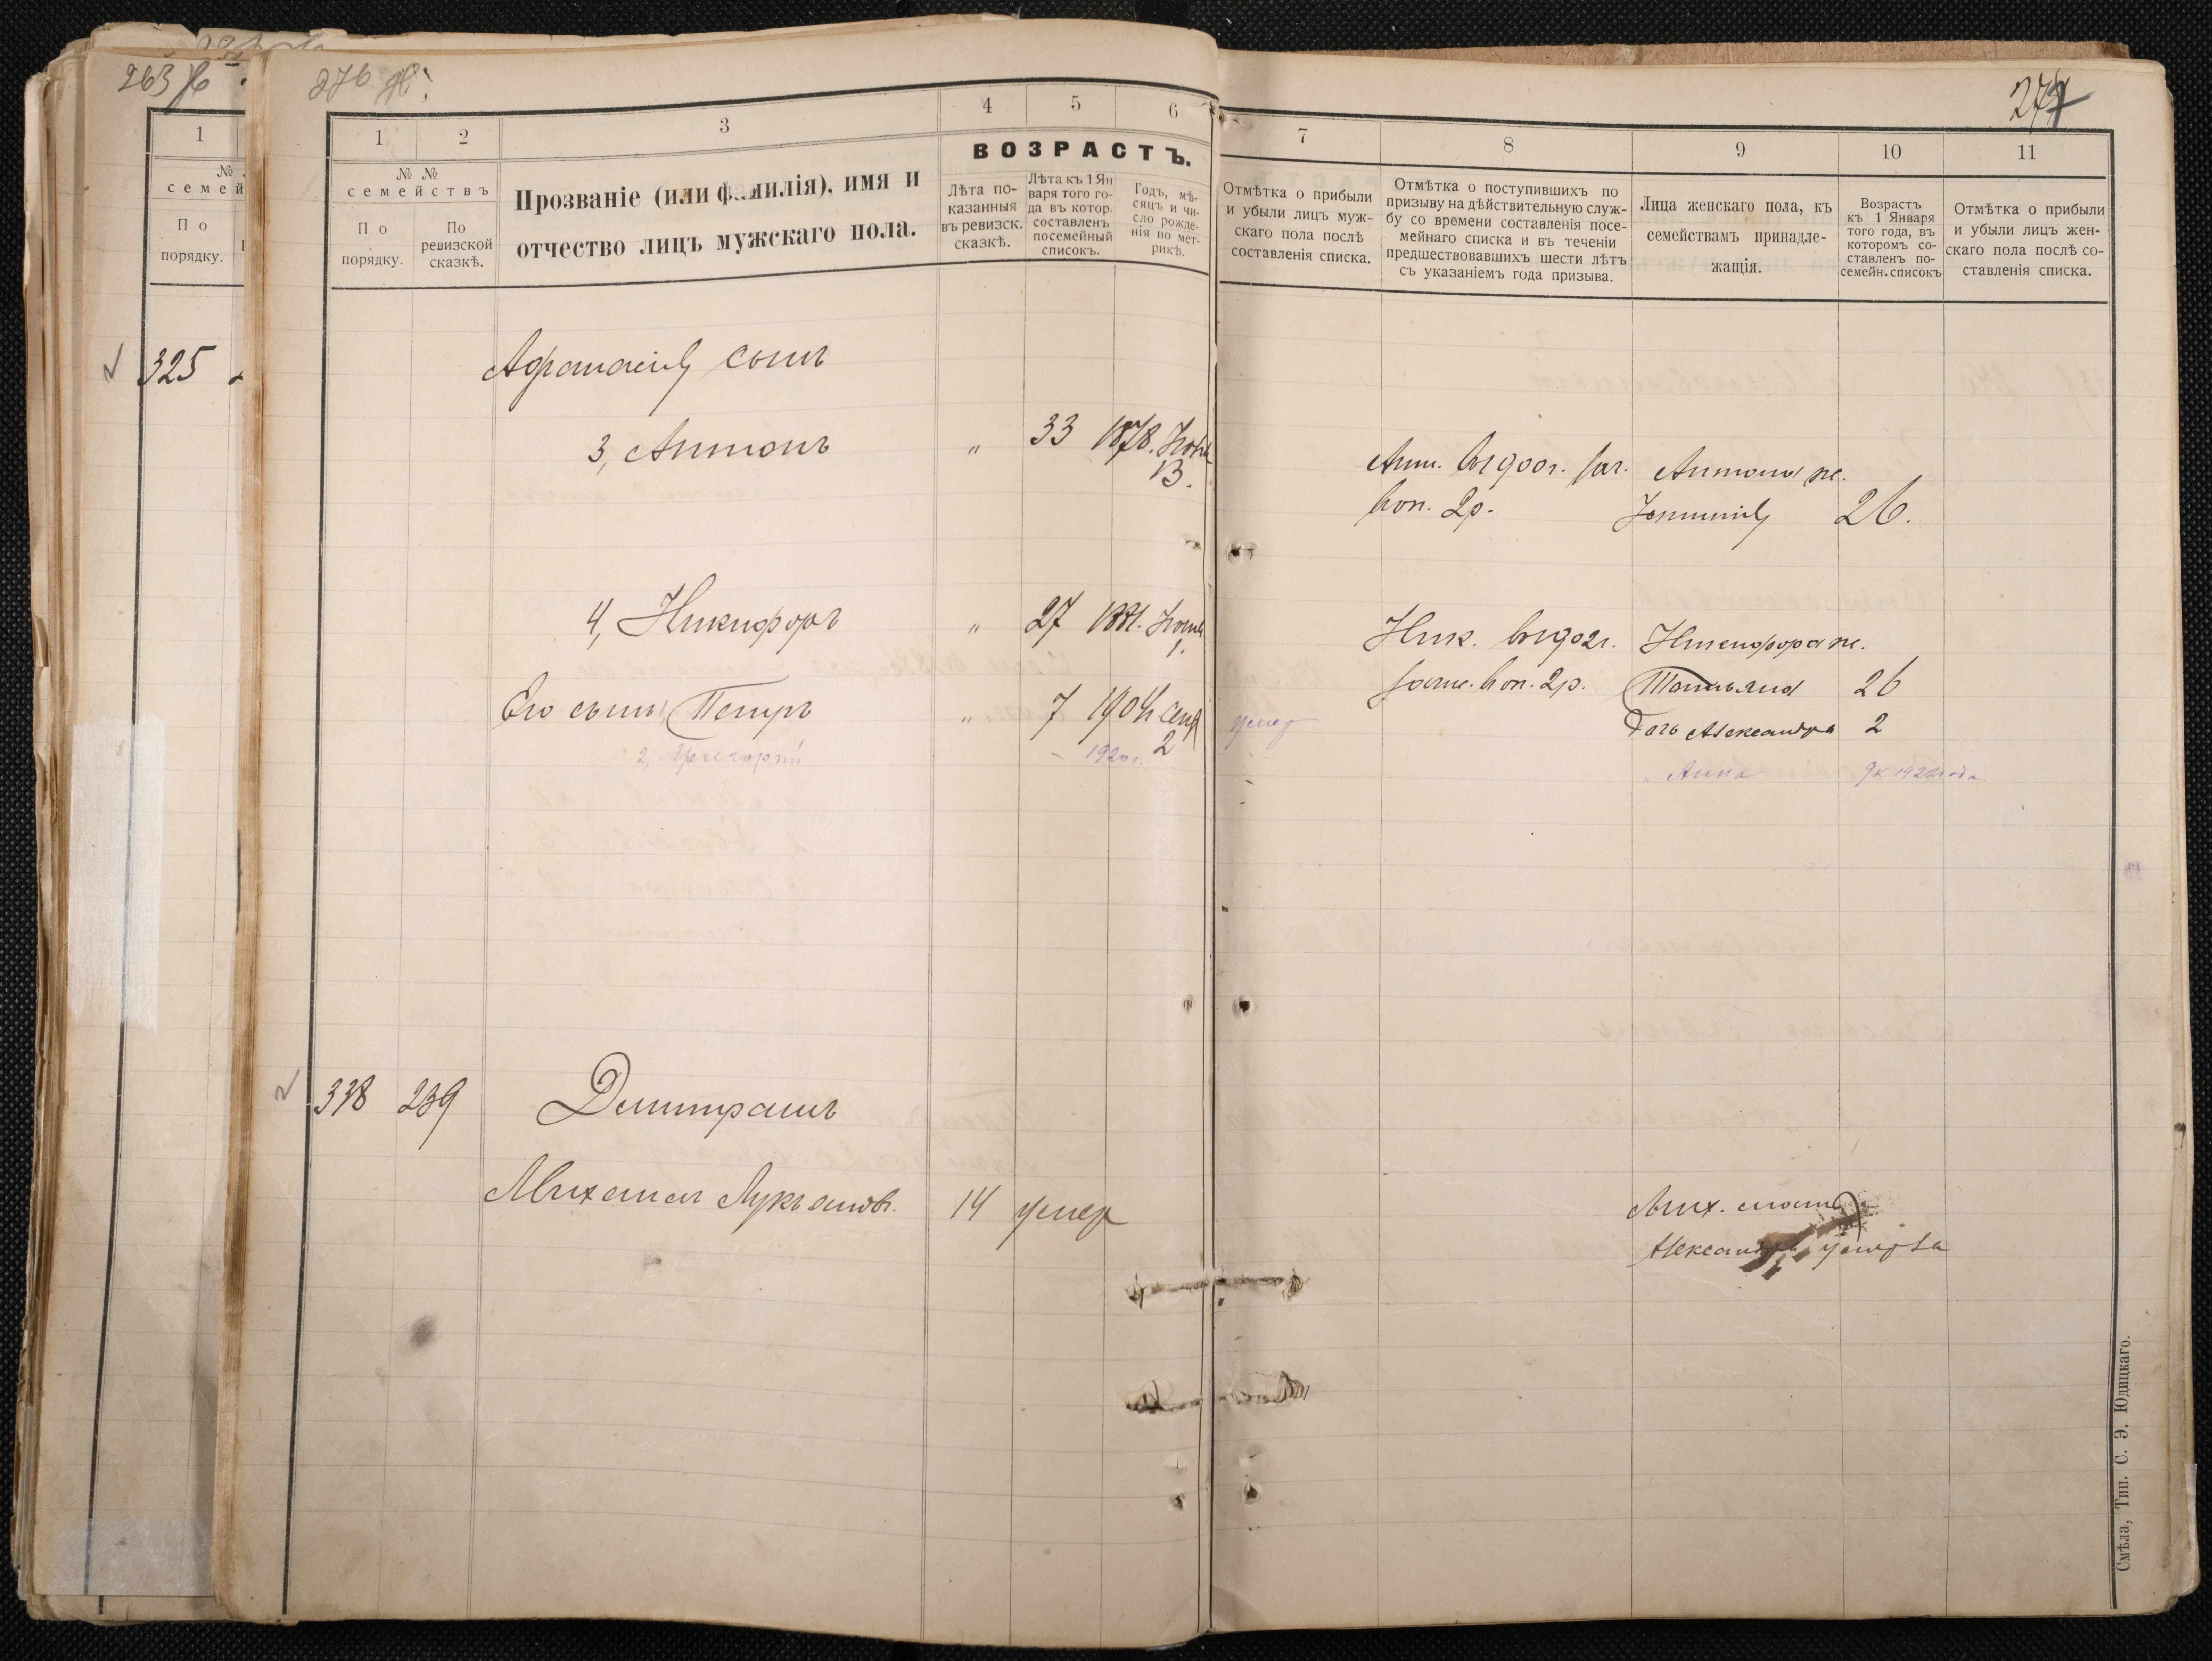 263
276
1
2
3
4
5
6
№ №
семействъ
По порядку.
По ревизской сказкѣ.
Прозваніе (или фамилія), имя и
отчество лицъ мужскаго пола.
ВОЗРАСТЪ.
Лѣта по-
казанныя
въ ревизск.
сказкѣ.
Лѣта къ 1 Ян
варя того го-
да въ котор.
составленъ
посемейный
списокъ.
Годъ, мѣ-
сяцъ и чи-
сло рожде-
нія по мет-
рикѣ.
1
семей
По
порядку.
325
Афанасія сынъ
3, Антонъ " 33 1878. 13.
4, Никифоръ " 27 1881. 1.
Его сынъ Петръ " 7 1904 сент 2
2, Григорій 1920г.
338 239 Димитрашъ
Михаилъ Лукьяновъ. 14 умер
7
8
9
10
11
Отмѣтка о прибыли
и убыли лицъ муж-
скаго пола послѣ
составленія списка.
Отмѣтка о поступившихъ по
призыву на дѣйствительную служ-
бу со времени составленія посе-
мейнаго списка и въ теченіи
предшествовавшихъ шести лѣтъ
съ указаніемъ года призыва.
Лица женскаго пола, къ
семействамъ принадле-
жащія.
Возрастъ
къ 1 Января
того года, въ
которомъ со-
ставленъ по-
семейн. списокъ
Отмѣтка о прибыли
и убыли лицъ жен-
скаго пола послѣ со-
ставленія списка.
Ант. въ 1900г. Антона ж.
2р. 26.
Ник. въ 1902г. Никифора ж.
2р. Татьяна 26
умер Дочь Александра 2
" Анна 1922 года
Мих.
Александра умерла
Смѣла, Тип. С. Э. Юдицкаго.